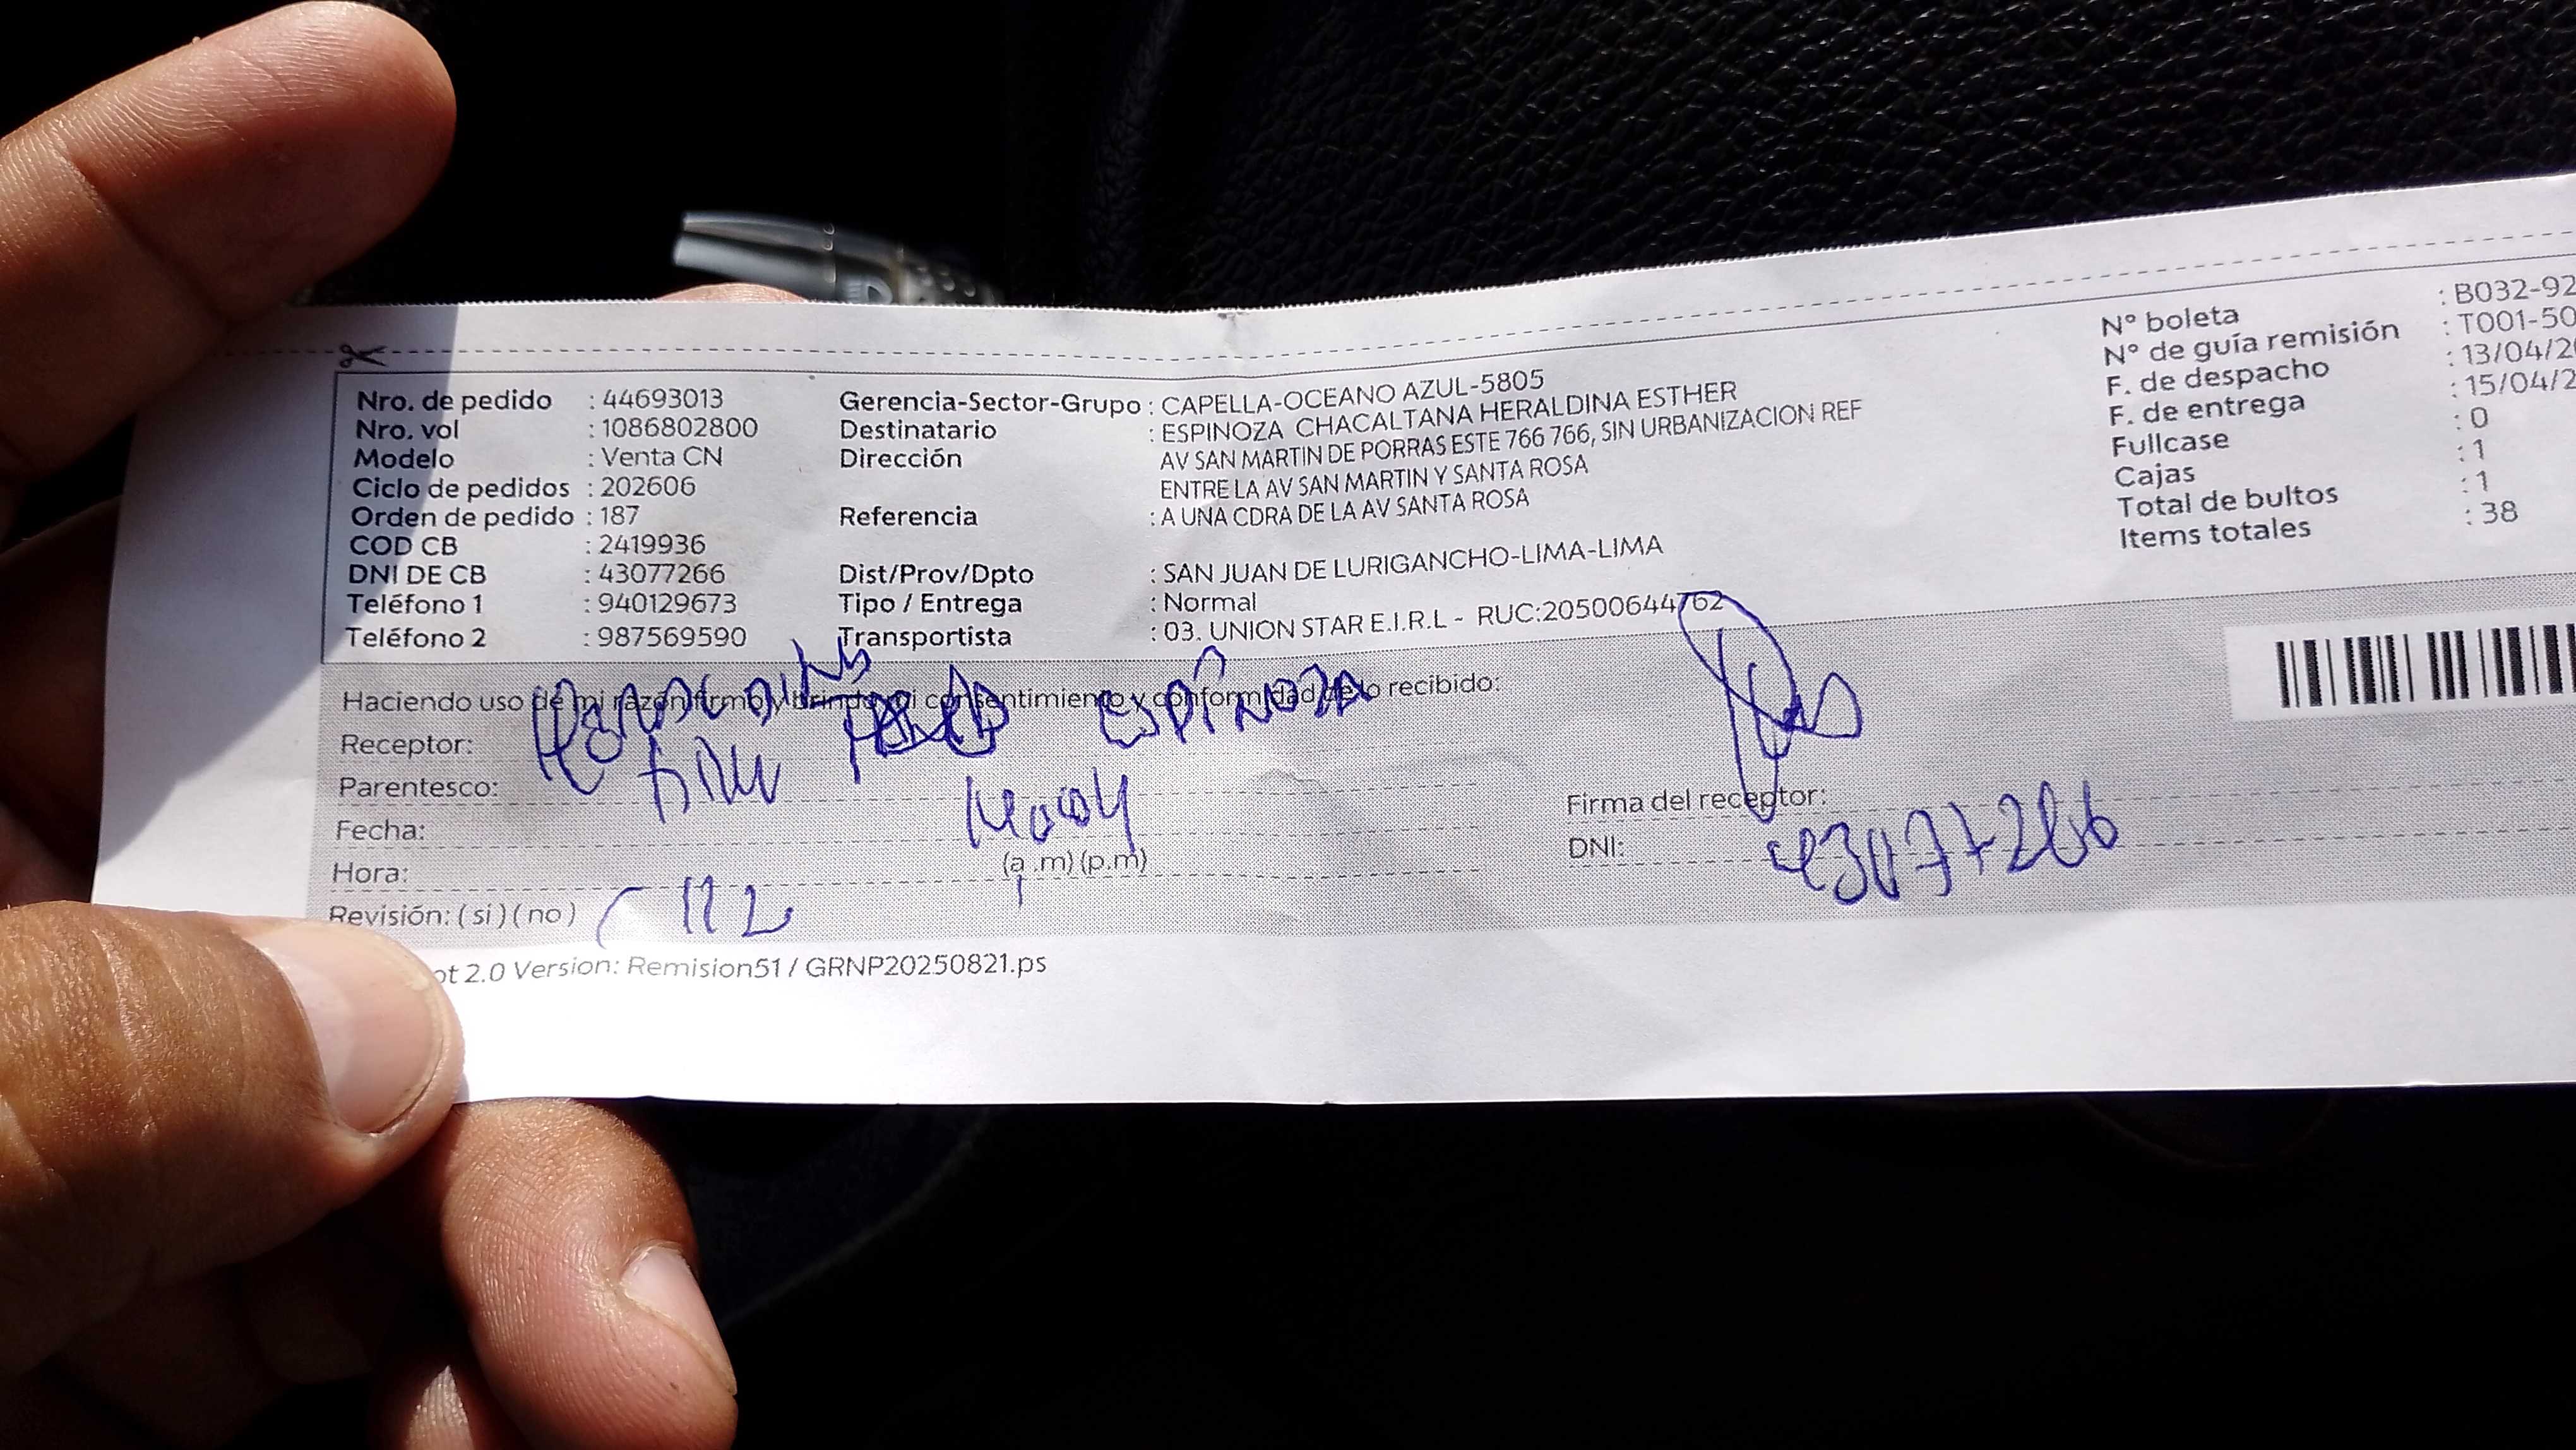 Nro. de pedido : 44693013
Nro. vol : 1086802800
Modelo : Venta CN
Ciclo de pedidos : 202606
Orden de pedido : 187
COD CB : 2419936
DNI DE CB : 43077266
Teléfono 1 : 940129673
Teléfono 2 : 987569590
Gerencia-Sector-Grupo : CAPELLA-OCEANO AZUL-5805
Destinatario : ESPINOZA CHACALTANA HERALDINA ESTHER
Dirección : AV SAN MARTIN DE PORRAS ESTE 766 766, SIN URBANIZACION REF
ENTRE LA AV SAN MARTIN Y SANTA ROSA
Referencia : A UNA CDRA DE LA AV SANTA ROSA
Dist/Prov/Dpto : SAN JUAN DE LURIGANCHO-LIMA-LIMA
Tipo / Entrega : Normal
Transportista : 03. UNION STAR E.I.R.L - RUC:20500644762
N° boleta : B032-92
N° de guía remisión : T001-50
F. de despacho : 13/04/2
F. de entrega : 15/04/2
Fullcase : 0
Cajas : 1
Total de bultos : 1
Items totales : 38
Haciendo uso de mi razón firmo y brindo mi consentimiento y conformidad de lo recibido:
Receptor: ESPINOZA
Parentesco:
Fecha:
Hora: (a.m) (p.m)
Revisión: ( si ) ( no )
Firma del receptor:
DNI: 43077266
ot 2.0 Version: Remision51 / GRNP20250821.ps